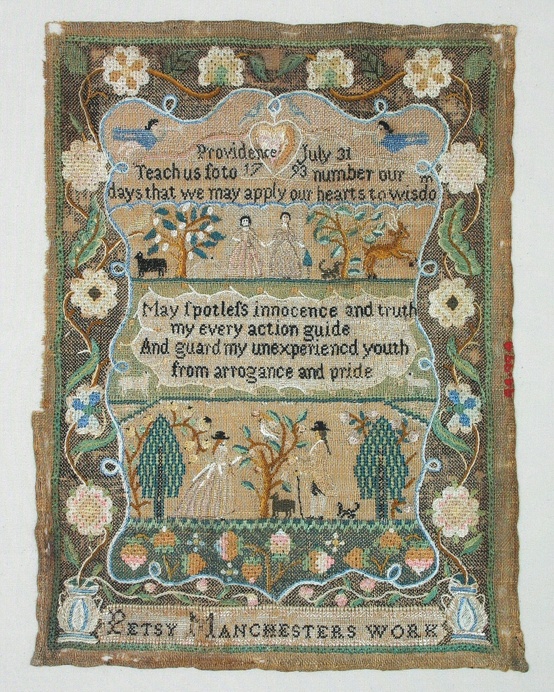 Providence July 31
Teach us so to 1793 number our
days that we may apply our hearts to wisdom
May ſpotleſs innocence and truth
my every action guide
And guard my unexperiencd youth
from arrogance and pride
BETSY MANCHESTERS WORK